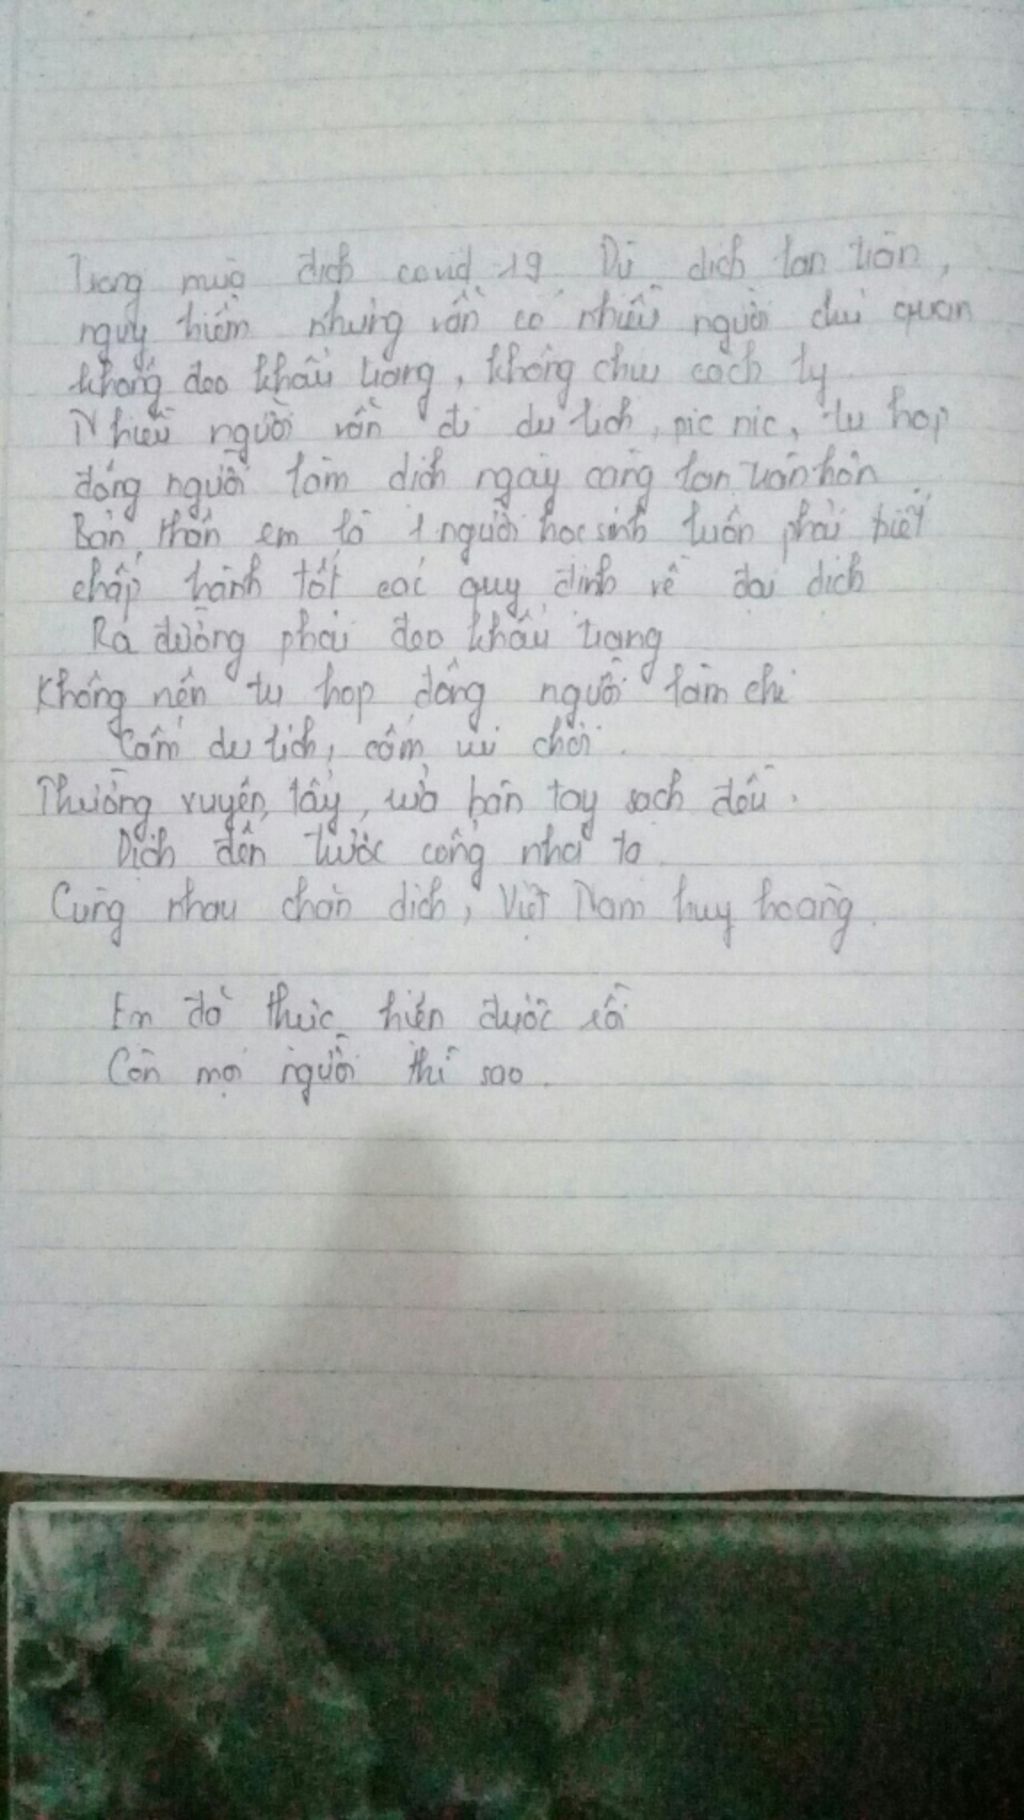 Trong mùa dịch covid 19. Dù dịch lan tràn,
nguy hiểm nhưng vẫn có nhiều người chủ quan
không đeo khẩu trang, không chịu cách ly
Nhiều người vẫn đi du lịch, pic nic, tụ họp
đông người làm dịch ngày càng lan tràn hơn
Bản thân em là 1 người học sinh luôn phải biết
chấp hành tốt các quy định về đại dịch
Ra đường phải đeo khẩu trang
Không nên tụ họp đông người làm chi
Cấm du lịch, cấm vui chơi.
Thường xuyên, tẩy, rửa bàn tay sạch đều.
Dịch đến trước cổng nhà ta
Cùng nhau chặn dịch, Việt Nam huy hoàng.
Em đã thực hiện được rồi
Còn mọi người thì sao.